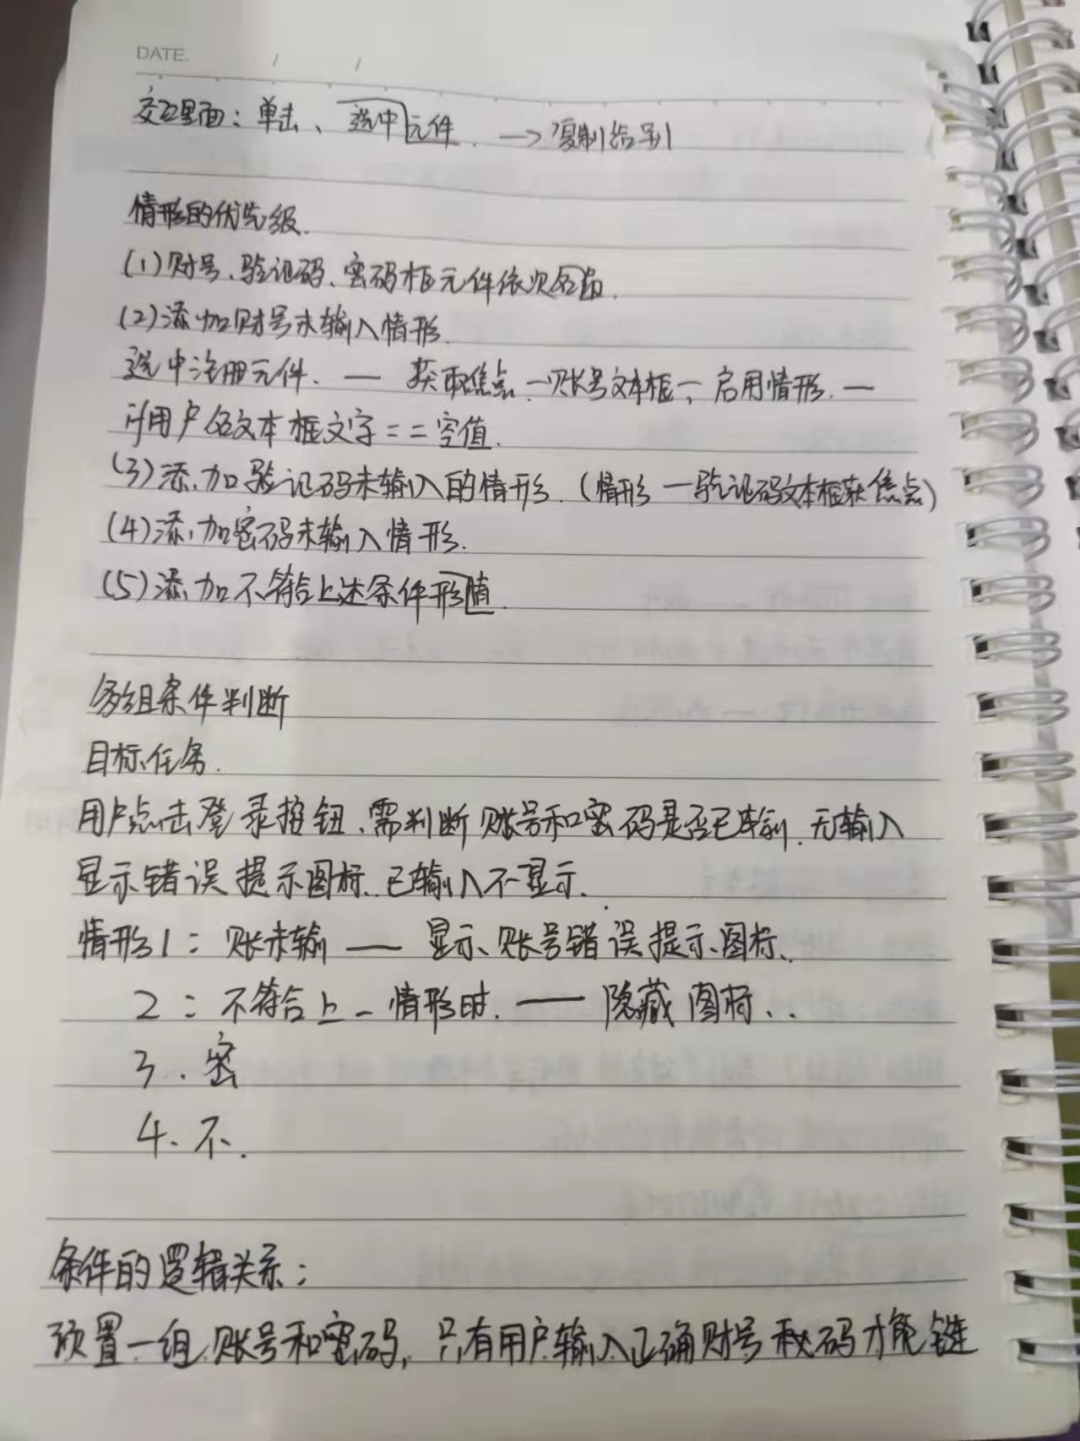 DATE. / /
交互里面：单击、选中元件 → 复制给别
情形的优先级.
(1)财号、验证码、密码框元件依次命名.
(2)添加财号未输入情形.
选中注册元件. — 获取焦点 — 账号文本框 — 启用情形. —
if用户名文本框文字==空值.
(3)添加验证码未输入的情形.(情形 — 验证码文本框获焦点)
(4)添加密码未输入情形.
(5)添加不符合上述条件形值
多组条件判断
目标任务.
用户点击登录按钮、需判断账号和密码是否已输入.无输入
显示错误提示图标.已输入不显示.
情形1：账未输 — 显示、账号错误提示图标.
2：不符合上一情形时. — 隐藏图标..
3.密
4.不.
条件的逻辑关系：
预置一组账号和密码，只有用户输入正确财号和码才能链